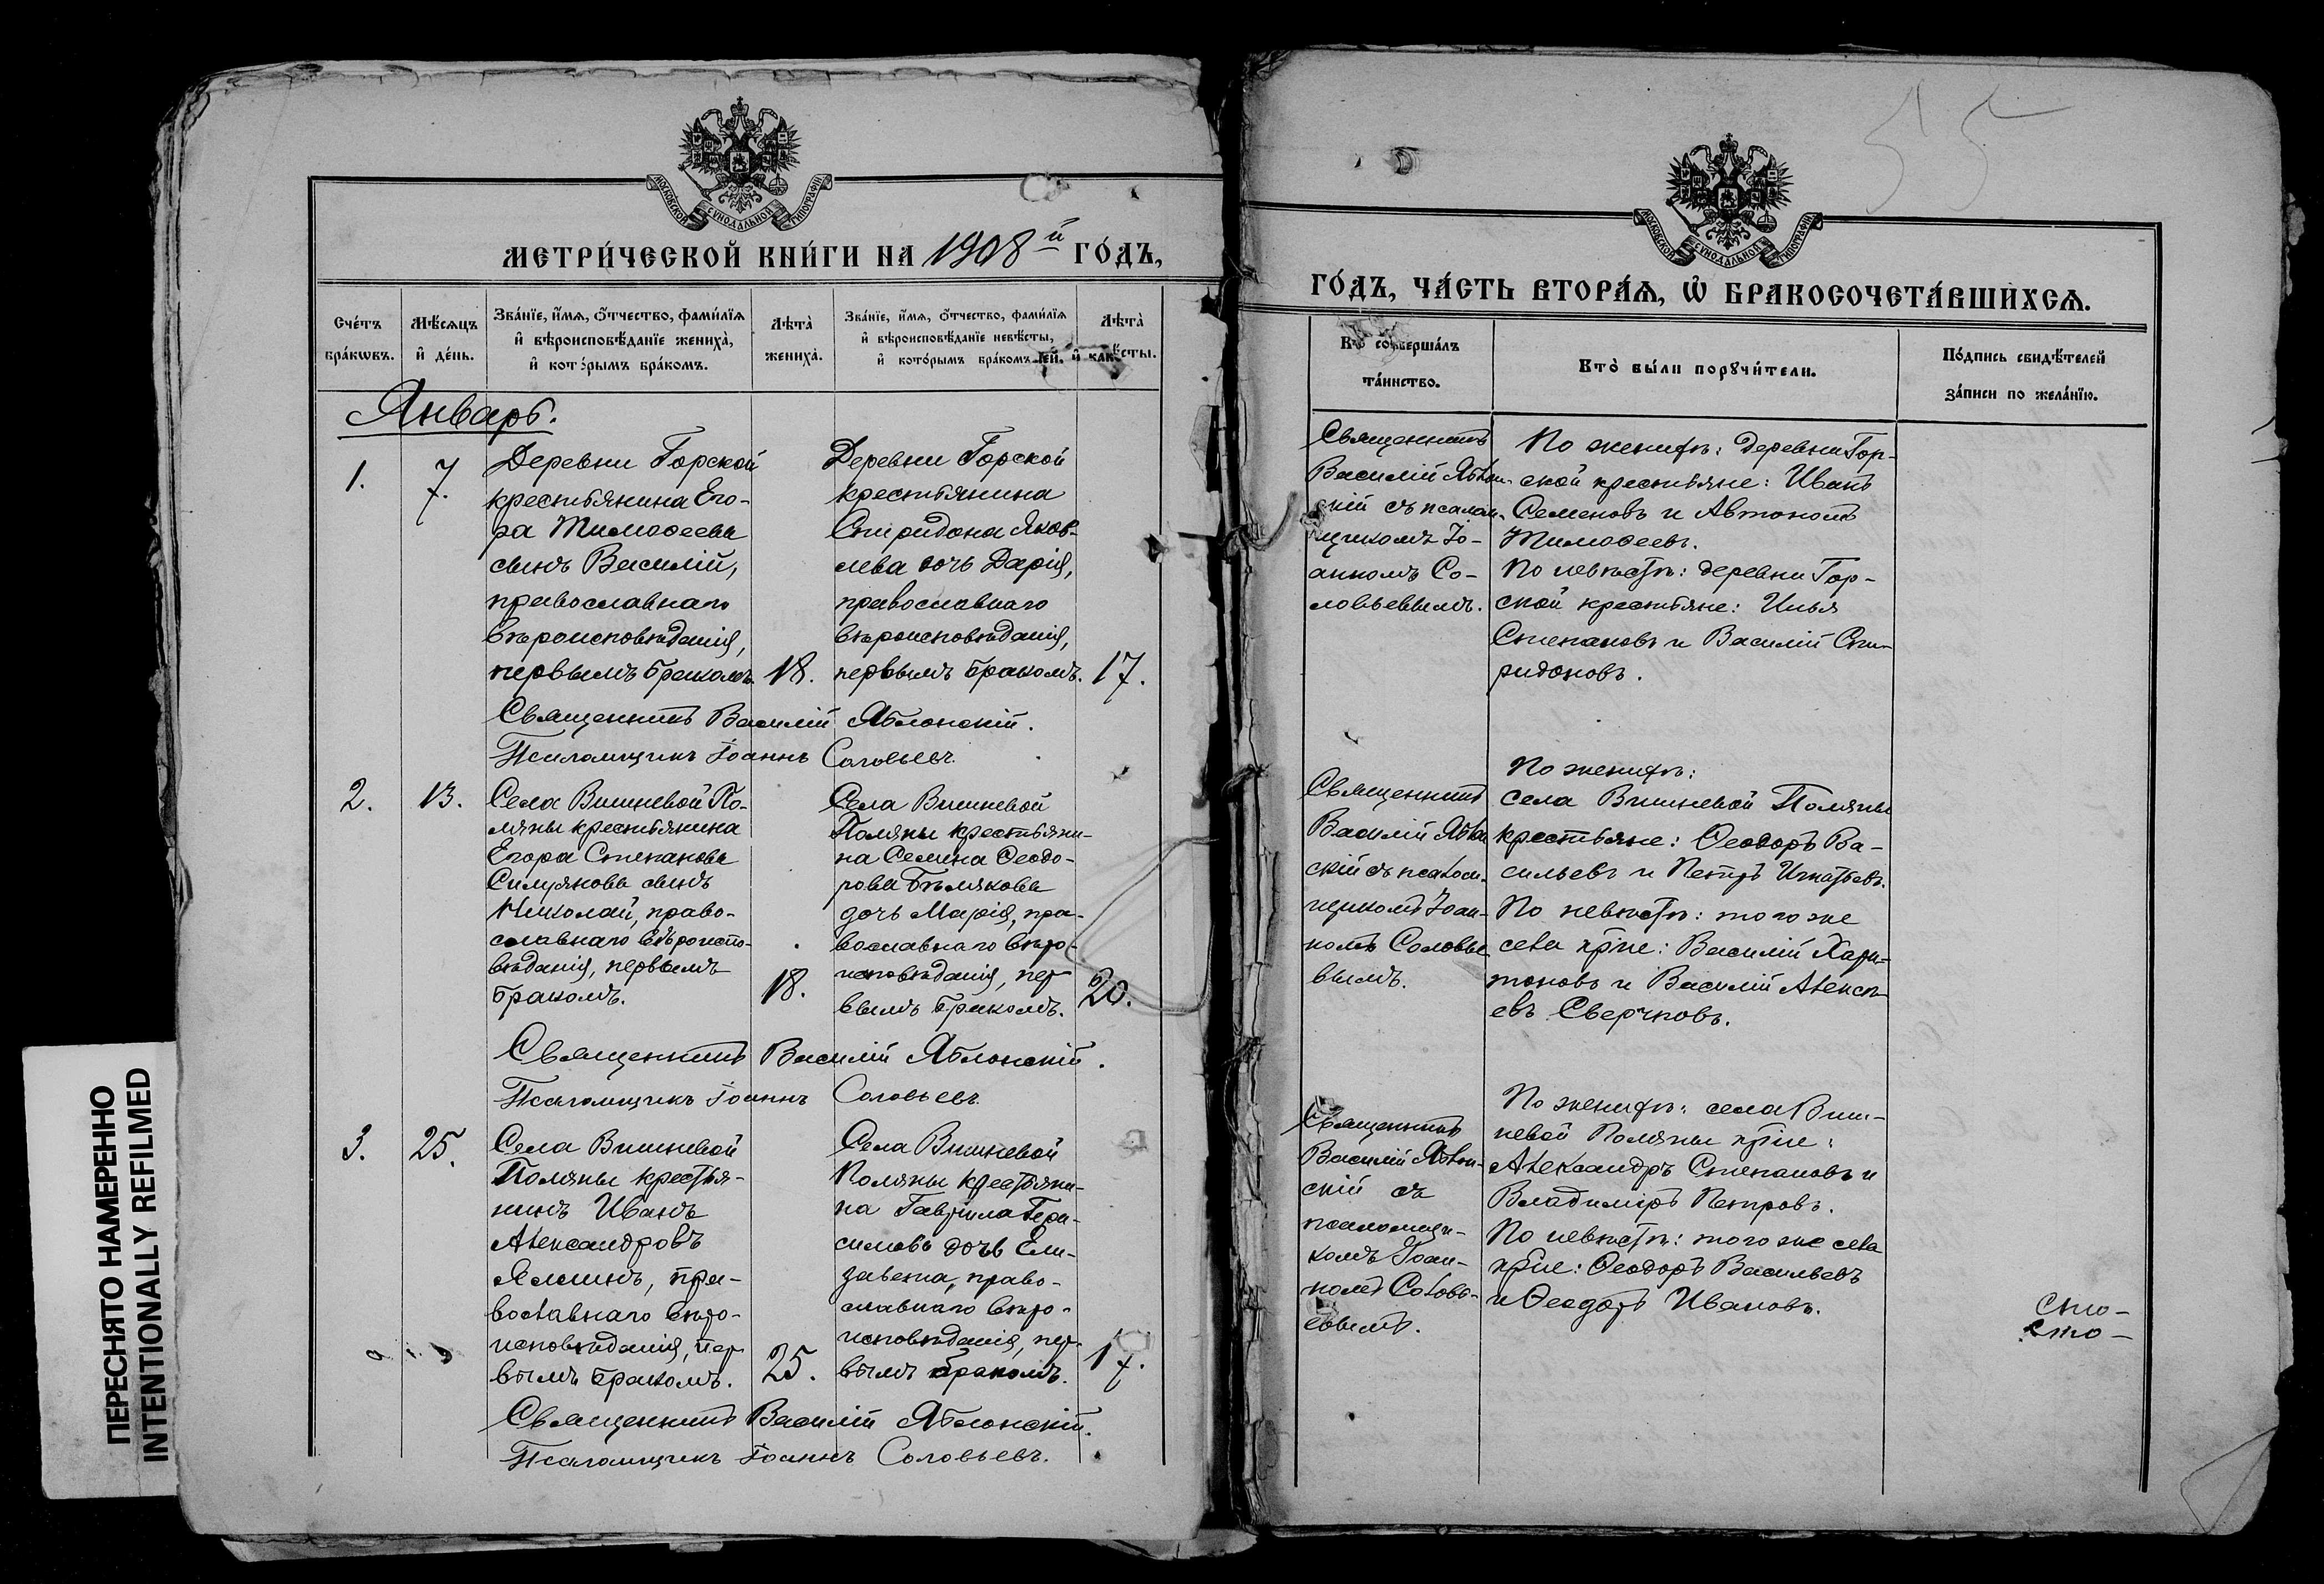 ПЕРЕСНЯТО НАМЕРЕННО
INTENTIONALLY REFILMED
МОСКОВСКОЙ СѴНОДАЛЬНОЙ ТИПОГРАФІИ
МЕТРИ́ЧЕСКОЙ КНИ́ГИ НА 1908й ГО́ДЪ,
Сче́тъ
бра́кѡвъ.
Мѣ́сѧцъ
и҆ де́нь.
Зва́нїе, и҆́мѧ, ѻ҆́тчество, фами́лїѧ
и҆ вѣроисповѣ́данїе жениха̀,
и҆ кото́рымъ бра́комъ.
Лѣта̀
жениха̀.
Зва́нїе, и҆́мѧ, ѻ҆́тчество, фами́лїѧ
и҆ вѣроисповѣ́данїе невѣ́сты,
и҆ кото́рымъ бра́комъ
Лѣта̀
Январь.
1.
7.
Деревни Горской
крестьянина Его-
ра Тимоѳеева
сынъ Василій,
православнаго
вѣроисповѣданія,
первымъ бракомъ.
18.
Деревни Горской
крестьянина
Спиридона Яков-
лева дочь Дарія,
православнаго
вѣроисповѣданія,
первымъ бракомъ.
17.
Священникъ Василій Яблонскій.
Псаломщикъ Іоаннъ Соловьевъ.
2.
13.
Села Вишневой По-
ляны крестьянина
Егора Степанова
сынъ
Николай, право-
славнаго вѣроиспо-
вѣданія, первымъ
бракомъ.
18.
Села Вишневой
Поляны крестьяни-
на Семена Ѳеодо-
рова Бѣлякова
дочь Марія, пра-
вославнаго вѣро-
исповѣданія, пер-
вымъ бракомъ.
20.
Священникъ Василій Яблонскій.
Псаломщикъ Іоаннъ Соловьевъ.
3.
25.
Села Вишневой
Поляны крестья-
нинъ Иванъ
Александровъ
пра-
вославнаго вѣро-
исповѣданія, пер-
вымъ бракомъ.
25.
Села Вишневой
Поляны крестьяни-
на Гавріила Гера-
симова дочь Ели-
завета, право-
славнаго вѣро-
исповѣданія, пер-
вымъ бракомъ.
17.
Священникъ Василій Яблонскій.
Псаломщикъ Іоаннъ Соловьевъ.
55
МОСКОВСКОЙ СѴНОДАЛЬНОЙ ТИПОГРАФІИ
ГО́ДЪ, ЧА́СТЬ ВТОРА́Ѧ, Ѽ БРАКОСОЧЕТА́ВШИХСѦ.
Кто̀ соверша́лъ
та́инство.
Кто̀ бы́ли порꙋчи́тели.
По́дпись свидѣ́телей
за́писи по жела́нїю.
Священникъ
Василій Яблон-
скій съ псалом-
щикомъ Іо-
анномъ Со-
ловьевымъ.
По женихѣ: деревни Гор-
ской крестьяне: Иванъ
Семеновъ и Автономъ
Тимоѳеевъ.
По невѣстѣ: деревни Гор-
ской крестьяне: Илья
Степановъ и Василій Спи-
ридоновъ.
Священникъ
Василій Яблон
скій съ псалом-
щикомъ Іоан-
номъ Соловье
вымъ.
По женихѣ:
села Вишневой Поляны
крестьяне: Ѳеодоръ Ва-
сильевъ и Петръ Игнатьевъ.
По невѣстѣ: того же
села кр̃не: Василій Хари-
тоновъ и Василій Алексѣ-
евъ Сверчковъ.
Священникъ
Василій Яблон-
скій съ
псаломщи-
комъ Іоан-
номъ Соловь-
евымъ.
По женихѣ: села Виш-
невой Поляны кр̃не:
Александръ Степановъ и
Владиміръ Петровъ.
По невѣстѣ: того же села
кр̃не: Ѳеодоръ Васильевъ
и Ѳеодотъ Ивановъ.